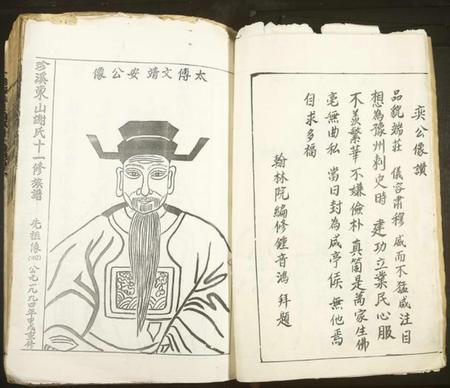 奕公像讚
品貌端莊 儀容肅穆 威而不猛咸注目
想為豫州刺史時 建功立業民心服
不羨繁華 不嫌儉朴 真箇是萬家生佛
毫無曲私 當日封為咸亭侯 無他焉
自求多福
翰林院編修鍾音鴻 拜題
太傅文靖安公像
珍溪東山謝氏十一修族譜 先祖像 公元一九九四年甲戌重修